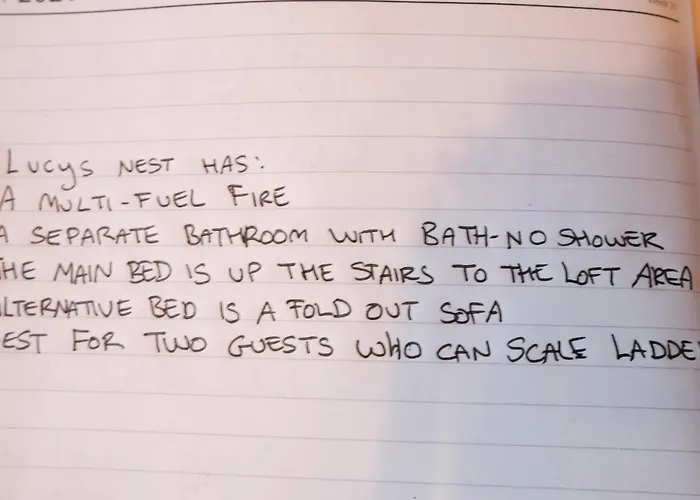 Lucys NEST HAS:
A MULTI-FUEL FIRE
A SEPARATE BATHROOM WITH BATH-NO SHOWER
HE MAIN BED IS UP THE STAIRS TO THE LOFT AREA
LTERNATIVE BED IS A FOLD OUT SOFA
EST FOR TWO GUESTS WHO CAN SCALE LADDE